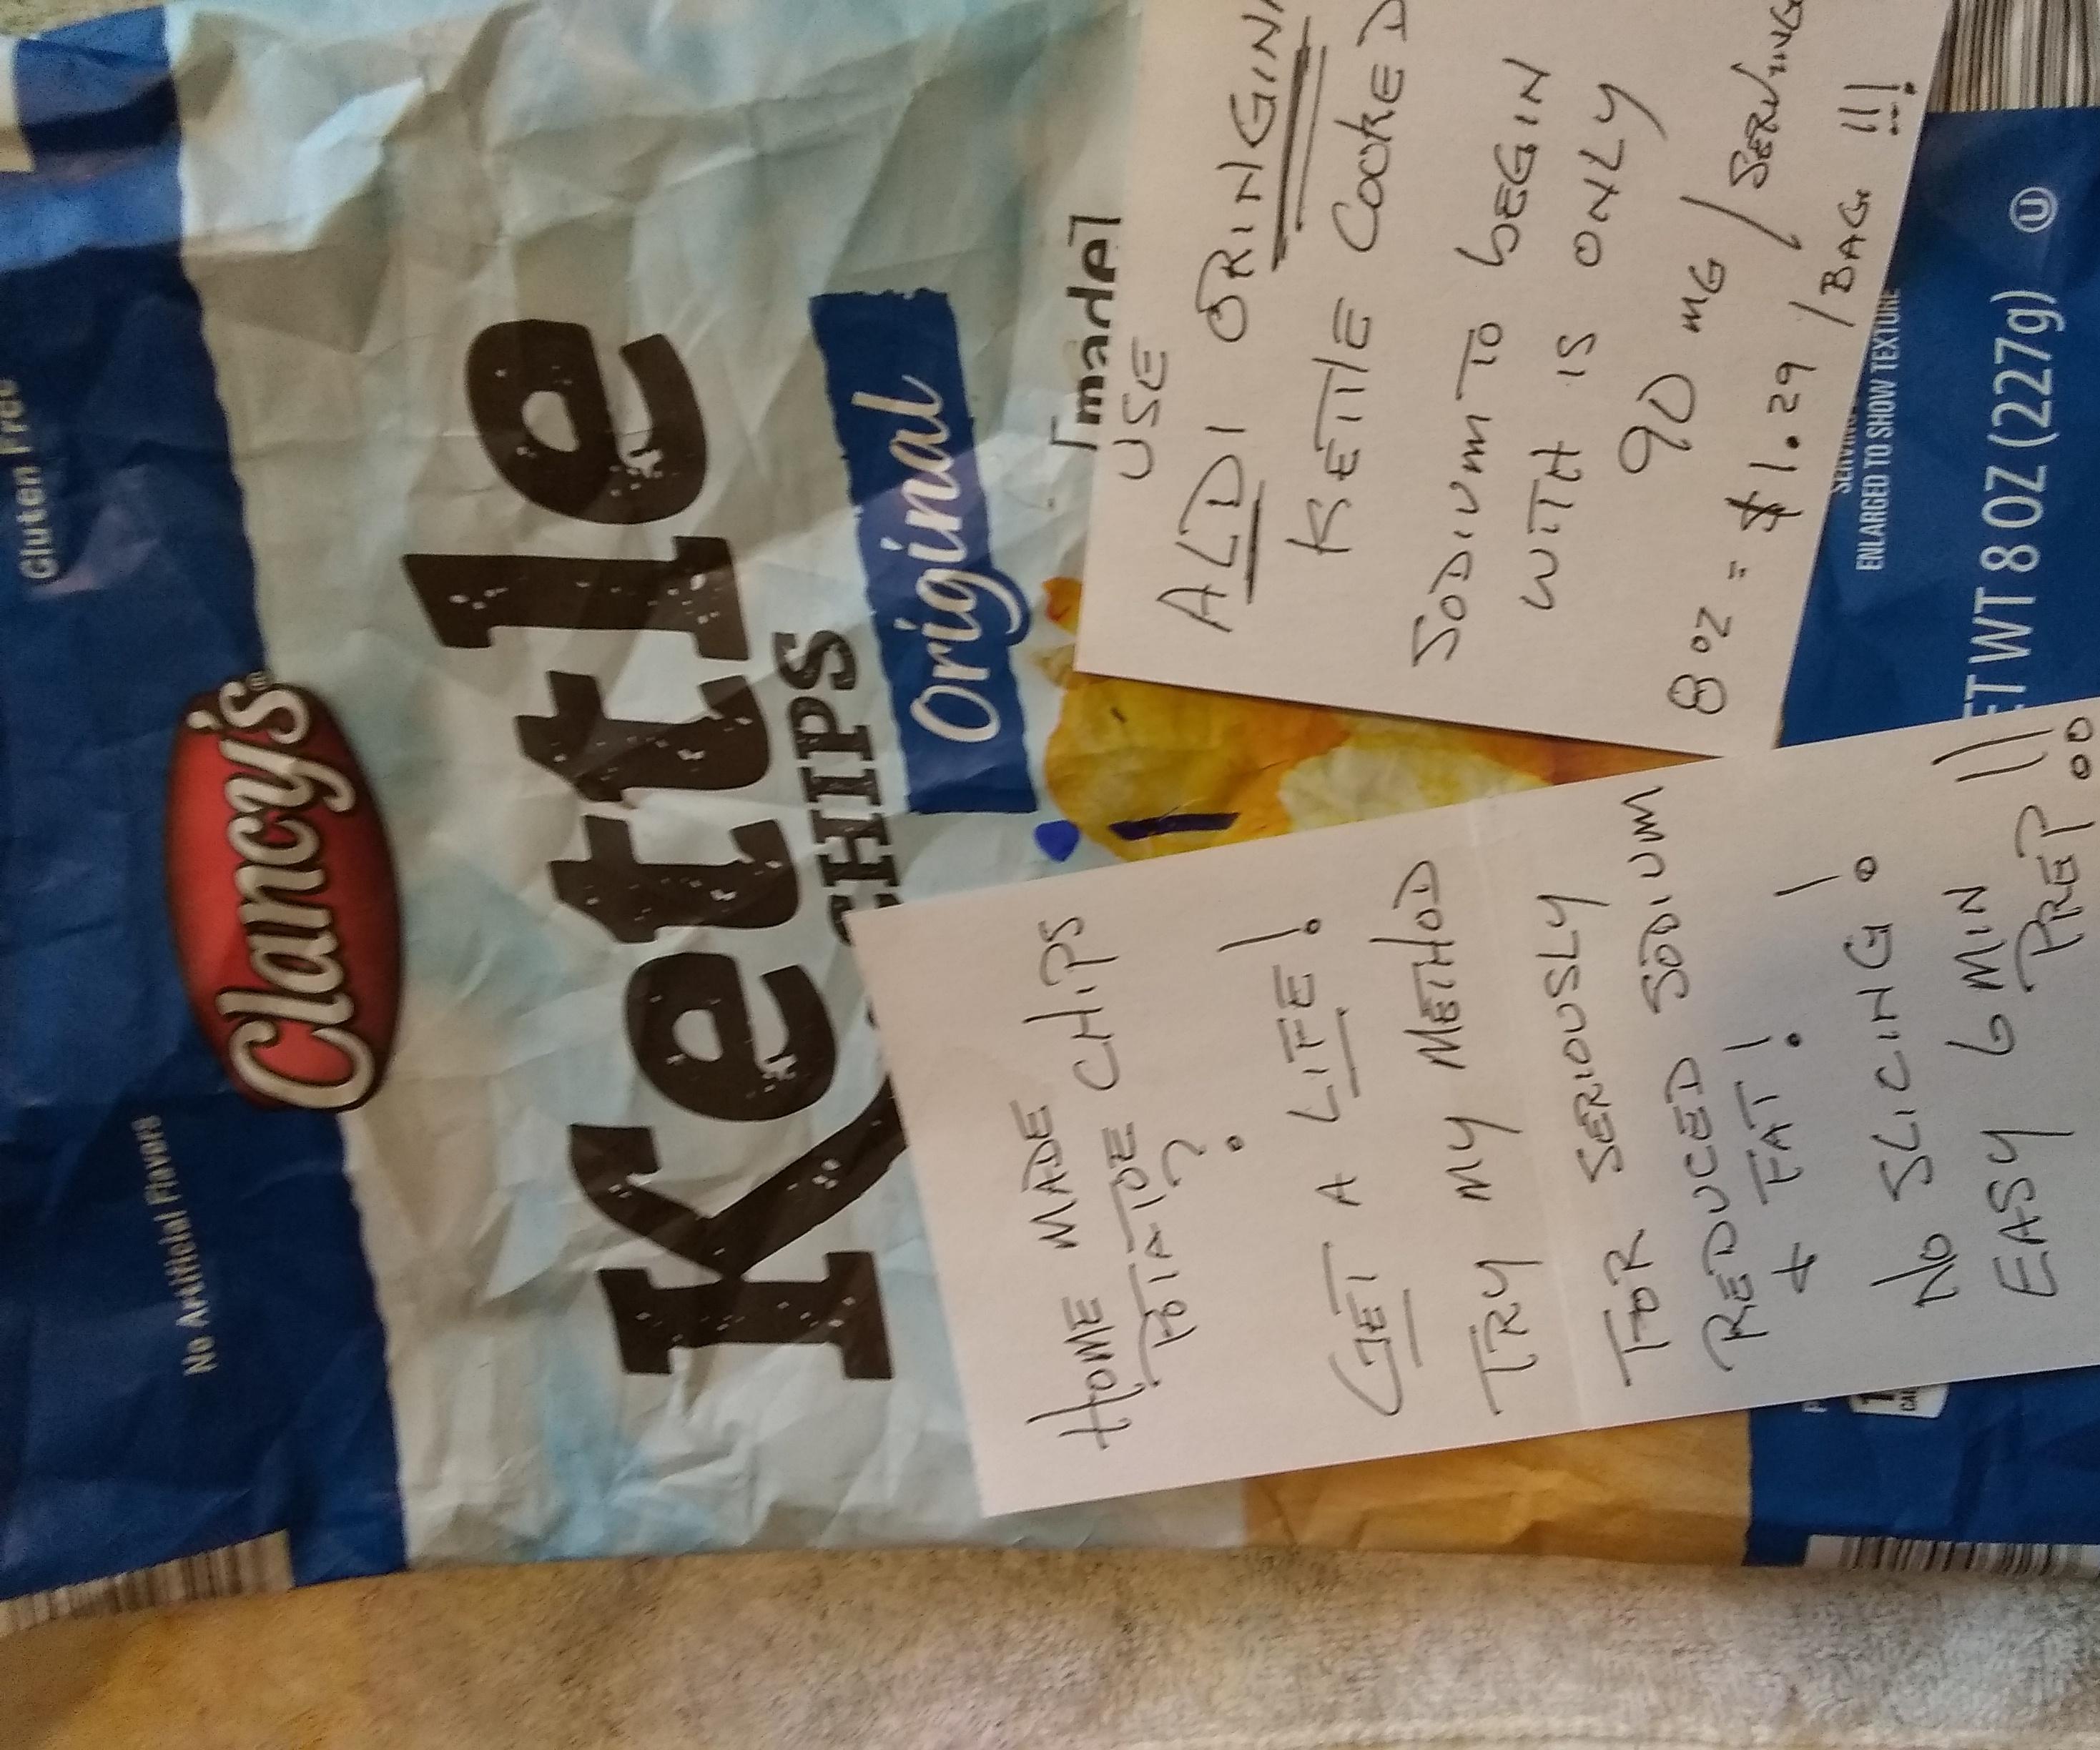 Gluten Free
No Artificial Flavors
Clancy's®
Kettle
CHIPS
Original
made
HOME MADE
POTATOE CHIPS
?
GET A LIFE!
TRY MY METHOD
FOR SERIOUSLY
REDUCED SODIUM
& FAT!
NO SLICING!
EASY 6 MIN
PREP!!
USE
ALDI ORINGINA
KETTLE COOKED
SODIUM TO BEGIN
WITH IS ONLY
90 MG / SERVING
8 OZ = $1.29 / BAG !!!
ENLARGED TO SHOW TEXTURE
ET WT 8 OZ (227g) U